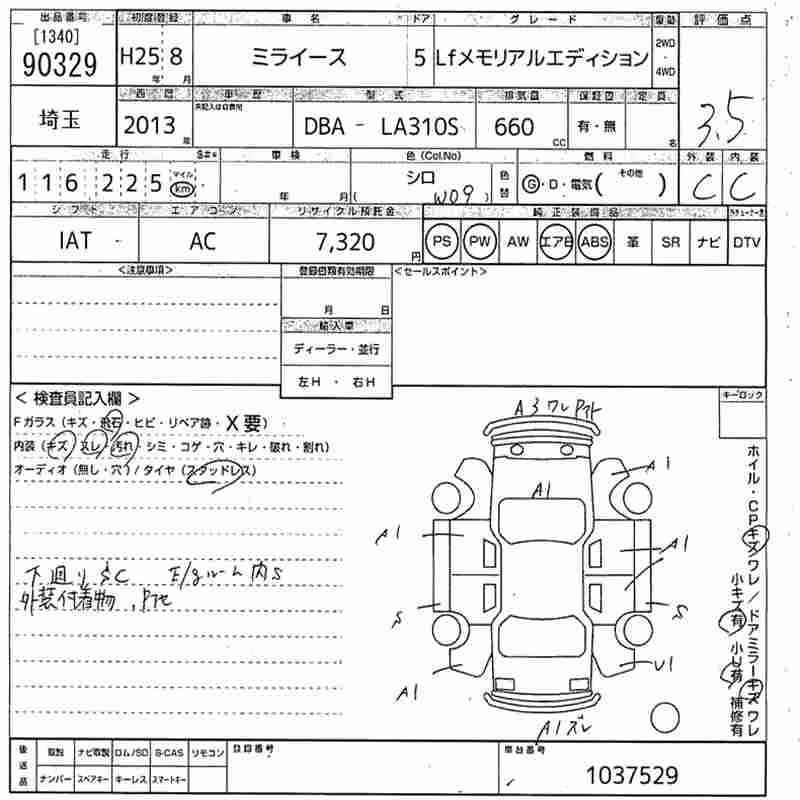 出品番号 初度登録 車名 ドア グレード 駆動 評価点
[1340]
90329 H25 8 ミライース 5 Lfメモリアルエディション 2WD ・ 4WD
年 月
西暦 車歴 型式 排気量 保証書 定員
埼玉 2013 年 DBA - LA310S 660 CC 有・無 名 3.5
走行 車検 色(Col.No) 燃料 外装 内装
116,225 マイル km 年 月 シロ ( W09 ) 色替 G・D・電気( その他 ) C C
シフト エアコン リサイクル預託金 純正装備品
IAT - AC 7,320 円 PS PW AW エアB ABS 革 SR ナビ DTV
<注意事項> 登録書類有効期限 <セールスポイント>
月 日
輸入車
ディーラー・並行
左H ・ 右H
< 検査員記入欄 > キーロック
Fガラス (キズ・飛石・ヒビ・リペア跡・X要)
内装 (キズ・スレ・汚れ・シミ・コゲ・穴・キレ・破れ・割れ)
オーディオ (無し・穴) / タイヤ (スタッドレス)
A3 ワレ Pアト
A1
A1
A1
A1
S
S
A1
U1
A1 ズレ
下廻りS.C E/gルーム内S
外装付着物、Pアセ
ホイル・CPキズワレ/ドアミラーキズワレ
小キズ有/小U有/補修有
後送品 取説 ナビ取説 ロム/SD B-CAS リモコン 登録番号 車台番号
ナンバー スペアキー キーレス スマートキー 1037529